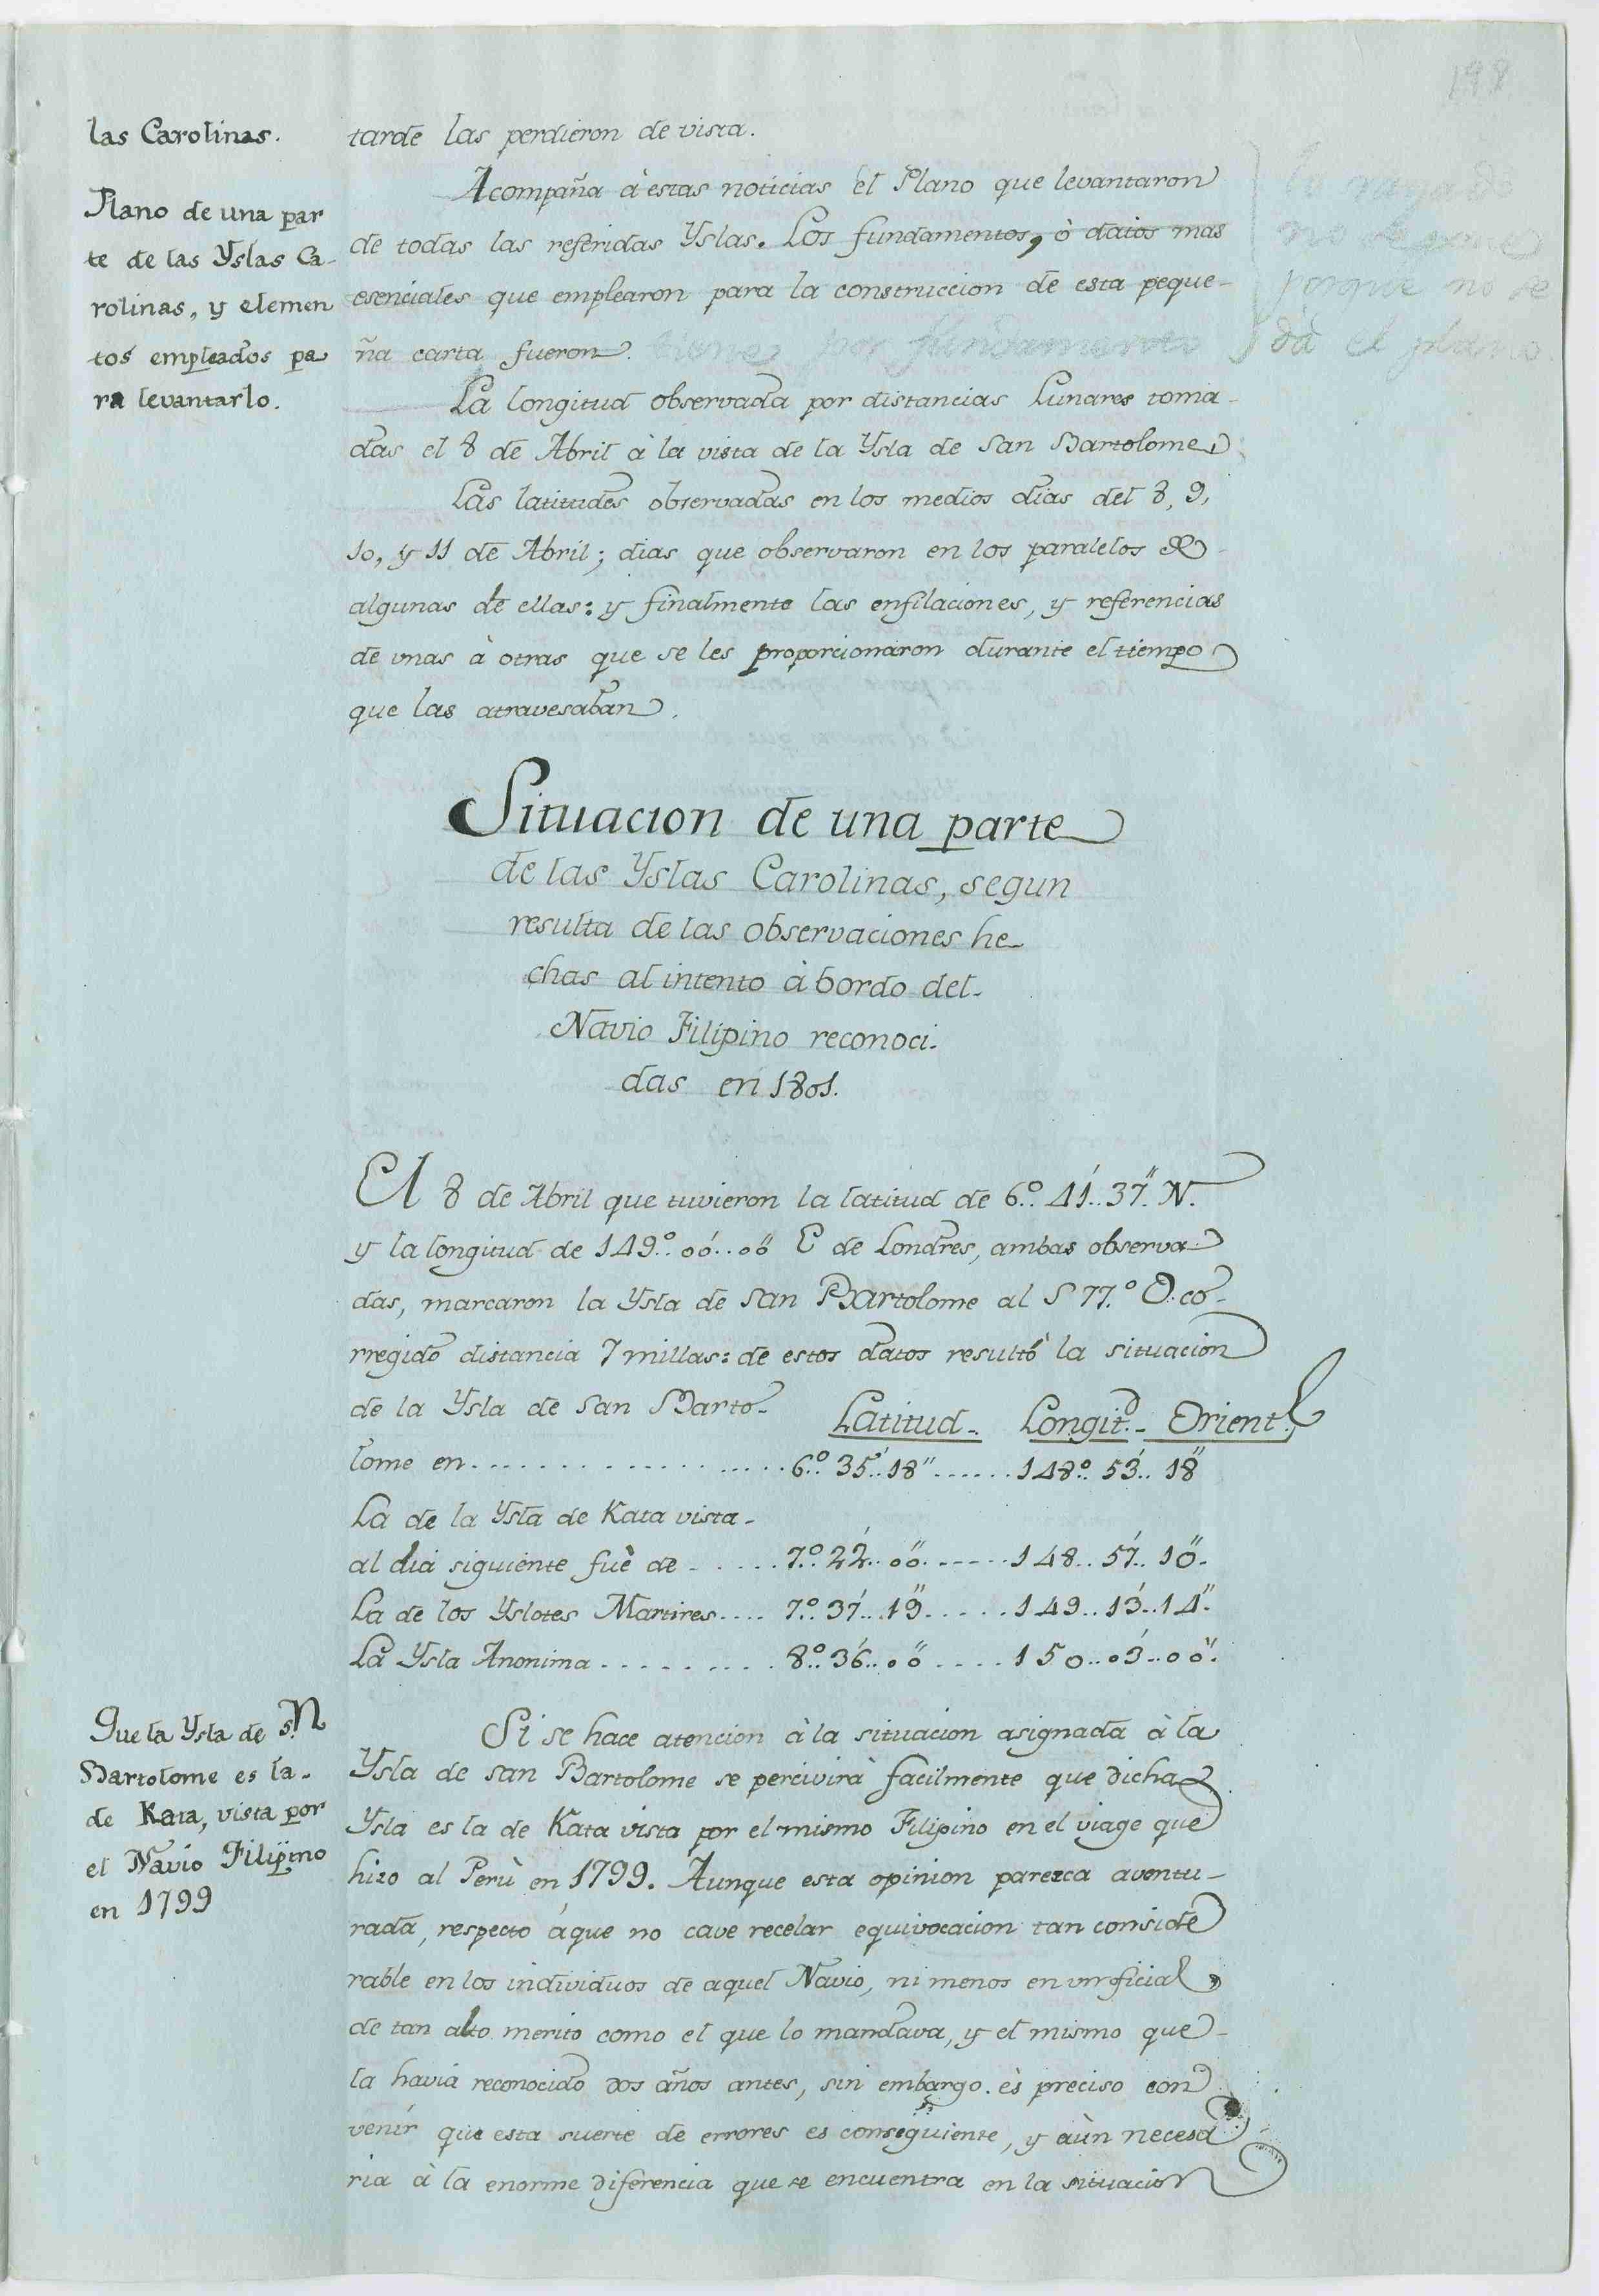 198
las Carolinas.
Plano de una par
te de las Yslas Ca-
rolinas, y elemen
tos empleados pa
ra levantarlo.
tarde las perdieron de vista.
Acompaña à estas noticias el Plano que levantaron
de todas las referidas Yslas. Los fundamentos, ò datos mas
esenciales que emplearon para la construccion de esta peque-
ña carta fueron. tiene por fundamentos
lo rayado
no se pone
porque no se
dà el plano
La longitud observada por distancias Lunares toma-
das el 8 de Abril à la vista de la Ysla de San Bartolome
Las latitudes observadas en los medios dias del 8, 9,
10, y 11 de Abril; dias que observaron en los paralelos de
algunas de ellas: y finalmente las enfilaciones, y referencias
de unas à otras que se les proporcionaron durante el tiempo
que las atravesaban.
Situacion de una parte
de las Yslas Carolinas, segun
resulta de las observaciones he-
chas al intento à bordo del
Navio Filipino reconoci-
das en 1801.
El 8 de Abril que tuvieron la latitud de 6.° 41'.. 37". N.
y la longitud de 149.° 00'.. 00" E de Londres, ambas observa-
das, marcaron la Ysla de San Bartolome al S 77.° O. co-
rregido distancia 7 millas: de estos datos resultó la situacion
de la Ysla de San Barto- Latitud.. Longit.d- Orient.l
lome en.................. 6.° 35'.. 18"...... 148.° 53'.. 18"
La de la Ysla de Kata vista-
al dia siguiente fuè de ...... 7.° 22'.. 00"...... 148.. 57'.. 10".
La de los Yslotes Martires.... 7.° 37'.. 19"..... 149.. 13'.. 14".
La Ysla Anonima......... 8.° 36'.. 00".... 150.. 03'.. 00".
Que la Ysla de S.n
Bartolome es la.
de Kata, vista por
el Navio Filipino
en 1799
Si se hace atencion à la situacion asignada à la
Ysla de San Bartolome se percivirà facilmente que dicha
Ysla es la de Kata vista por el mismo Filipino en el viage que
hizo al Perù en 1799. Aunque esta opinion parezca aventu-
rada, respecto áque no cave recelar equivocacion tan conside
rable en los individuos de aquel Navio, ni menos en un oficial,
de tan alto merito como el que lo mandava, y el mismo que
la havia reconocido dos años antes, sin embargo. ès preciso con
venir que esta suerte de errores es consiguiente, y aùn necesa
ria à la enorme diferencia que se encuentra en la situacion